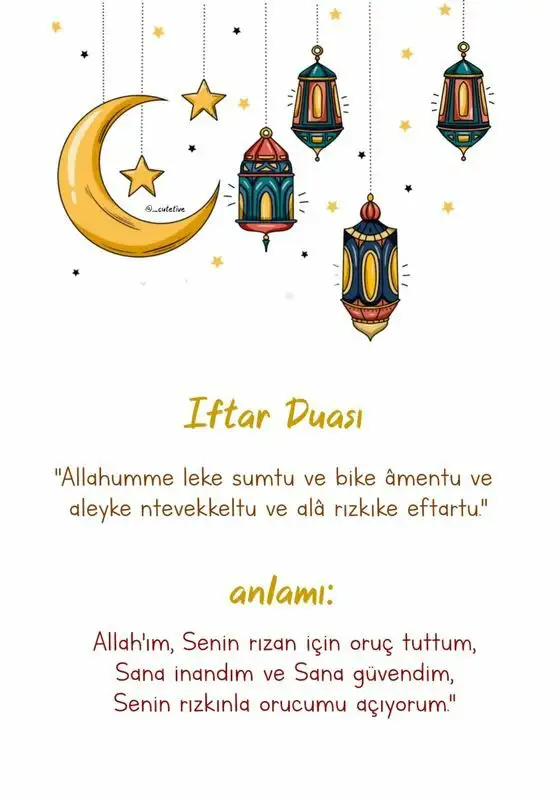 @_cutetive
Iftar Duası
"Allahumme leke sumtu ve bike âmentu ve
aleyke ntevekkeltu ve alâ rızkıke eftartu."
anlamı:
Allah'ım, Senin rızan için oruç tuttum,
Sana inandım ve Sana güvendim,
Senin rızkınla orucumu açıyorum."